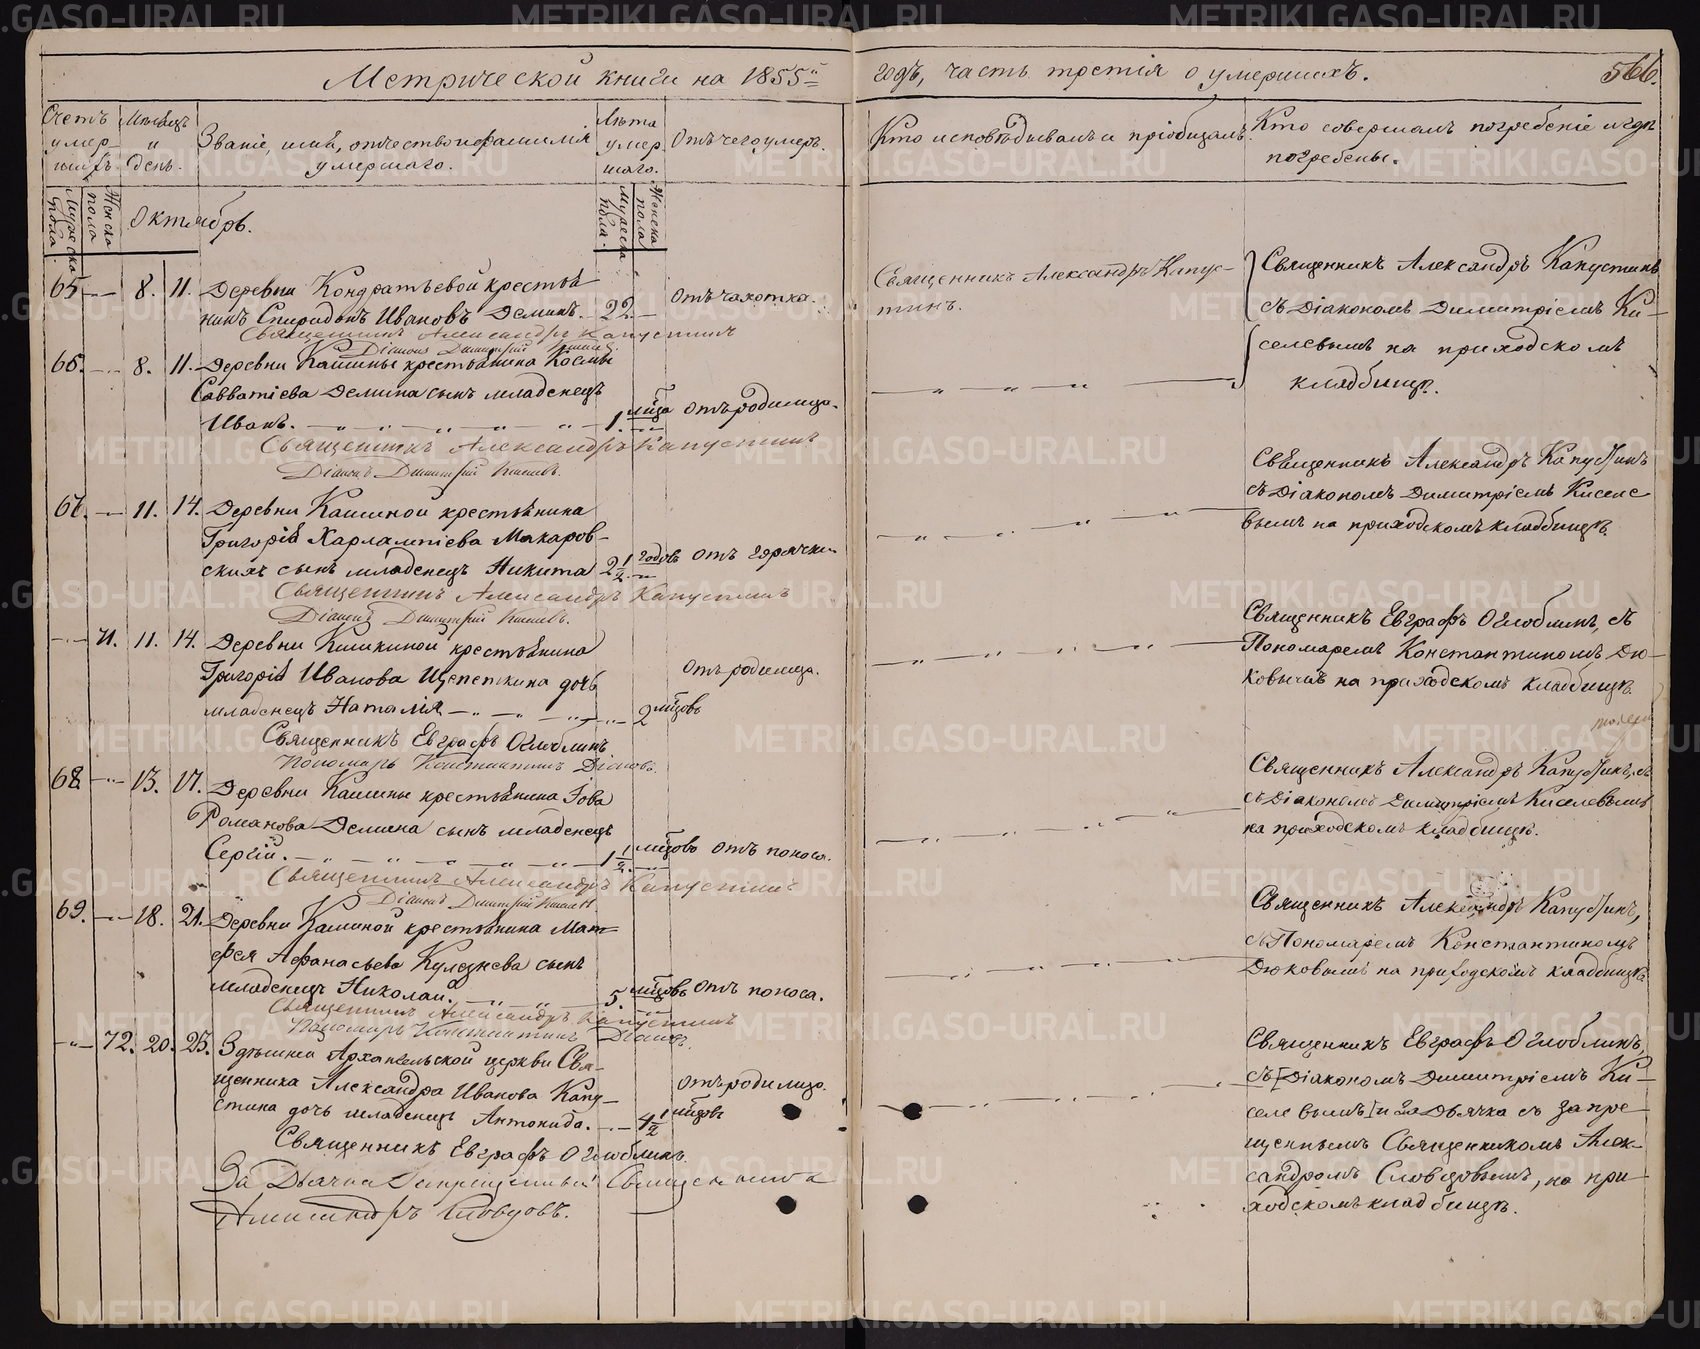 Метрической книги на 1855й
годъ, часть третія о умершихъ.
566.
Счетъ умер-шихъ.
Мѣсяцъ и день.
Званіе, имя, отчество и фамилія умершаго.
Лѣта умер-шаго.
Отъ чего умеръ.
Кто исповѣдывалъ и пріобщалъ.
Кто совершалъ погребеніе и гдѣ погребены.
Мужеска пола
Женска пола
Октябрь.
Мужеска пола.
Женска пола
65 — 8. 11. Деревни Кондратьевой крестья
нинъ Спиридонъ Ивановъ Деминъ. 22. — Отъ чахотки.
Священникъ Александръ Капустинъ
Діаконъ Димитрій Киселевъ.
Священникъ Александръ Капус-
тинъ.
Священникъ Александръ Капустинъ
съ Діакономъ Димитріемъ Ки-
селевымъ на приходскомъ
кладбищѣ.
66. — 8. 11. Деревни Кашины крестьянина Космы
Савватіева Демина сынъ младенецъ
Иванъ. — 1. мѣсца Отъ родимца.
Священникъ Александръ Капустинъ
Діаконъ Димитрій Киселевъ.
67. — 11. 14. Деревни Кашиной крестьянина
Григорія Харлампіева Макаров-
скихъ сынъ младенецъ Никита 2 1/2 годовъ Отъ горячки.
Священникъ Александръ Капустинъ
Діаконъ Димитрій Киселевъ.
Священникъ Александръ Капустинъ
съ Діакономъ Димитріемъ Киселе
вымъ на приходскомъ кладбищѣ.
71. 11. 14. Деревни Кишкиной крестьянина
Григорія Иванова Щепеткина дочь
младенецъ Наталія — 2 мѣсцовъ Отъ родимца.
Священникъ Евграфъ Оглоблинъ
Пономарь Константинъ Дюковъ.
Священникъ Евграфъ Оглоблинъ, съ
Пономаремъ Константиномъ Дю-
ковымъ на приходскомъ кладбищѣ.
68. — 13. 17. Деревни Кашины крестьянина Іова
Романова Демина сынъ младенецъ
Сергій. — 1 1/2 мѣсцовъ Отъ поноса.
Священникъ Александръ Капустинъ
Діаконъ Димитрій Киселевъ
Священникъ Александръ Капустинъ, съ
съ Діакономъ Димитріемъ Киселевымъ
на приходскомъ кладбищѣ.
69. — 18. 21. Деревни Кашиной крестьянина Мат-
фея Афанасьева Кулезнева сынъ
младенецъ Николай. — 5. мѣсцовъ Отъ поноса.
Священникъ Александръ Капустинъ
Пономарь Константинъ Дюковъ.
Священникъ Александръ Капустинъ,
съ Пономаремъ Константиномъ
Дюковымъ на приходскомъ кладбищѣ
72. 20. 23. Здѣшней Архангельской церкви Свя-
щенника Александра Иванова Капу-
стина дочь младенецъ Антонида. — 4 1/2 мѣсцовъ Отъ родимца.
Священникъ Евграфъ Оглоблинъ.
За Дьячка Запрещенный Священникъ
Александръ Словцовъ.
Священникъ Евграфъ Оглоблинъ,
съ Діакономъ Димитріемъ Ки-
селевымъ и за Дьячка съ запре-
щеннымъ Священникомъ Алек-
сандромъ Словцовымъ, на при-
ходскомъ кладбищѣ.
METRIKI.GASO-URAL.RU